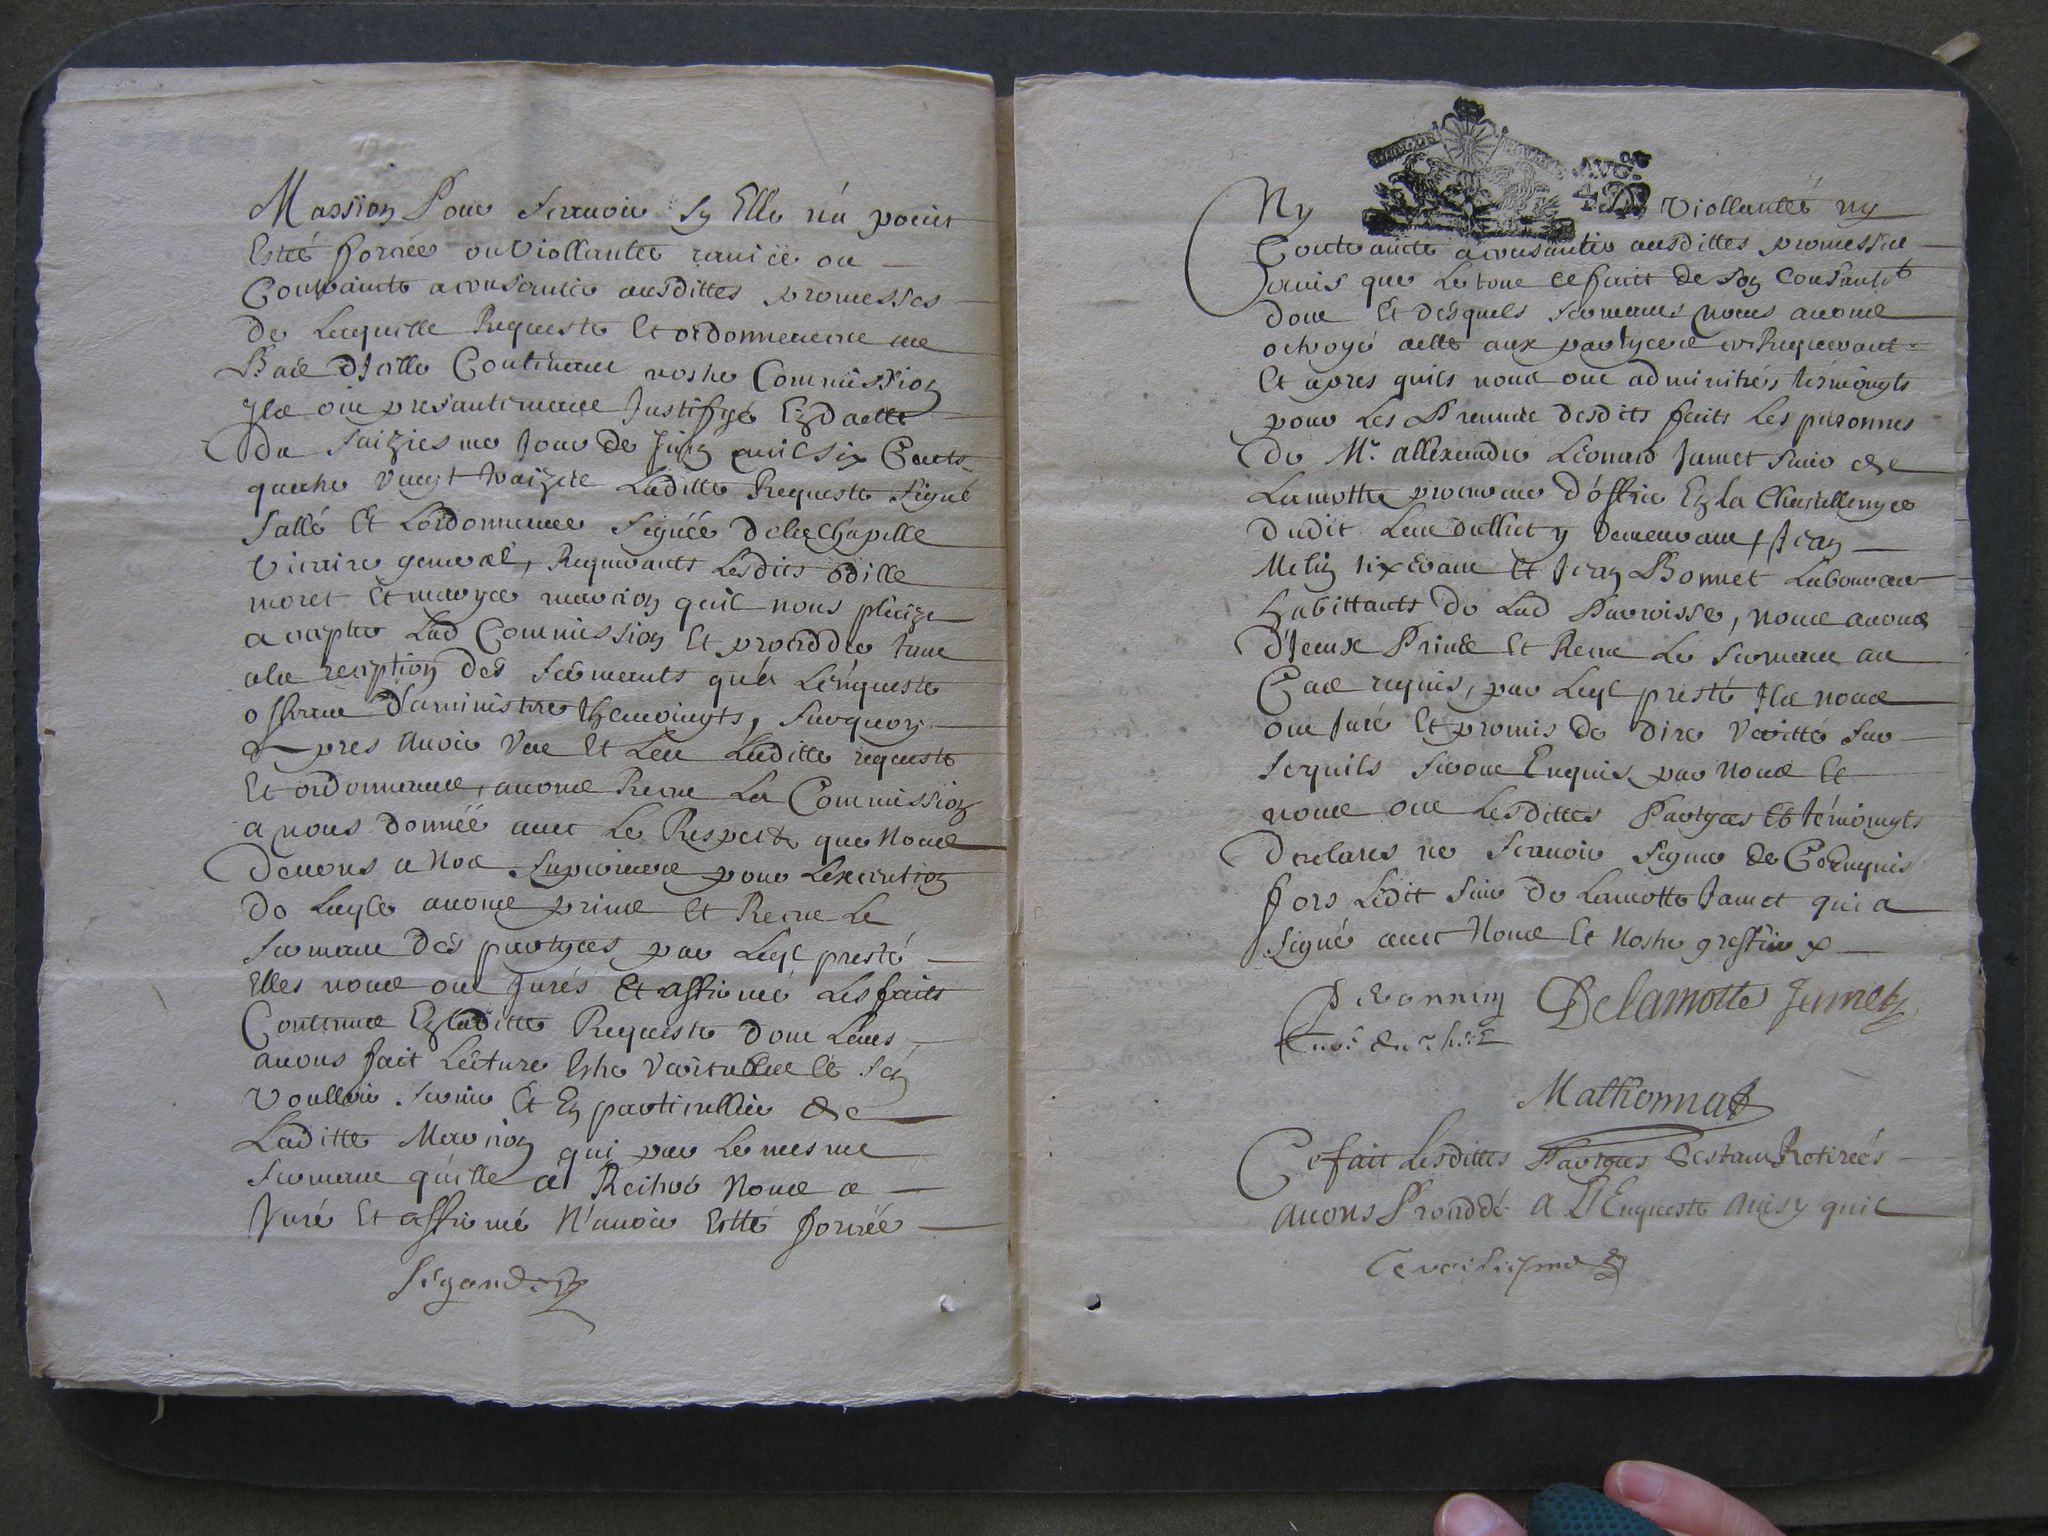 Massion Pour scauoir sy Elle n'a point
Esté forcée ou Viollantée rauiée ou
Contrainte a consantir ausdittes promesses
de Laquelle Requeste Et ordonnance au
Bas d'Icelle Contenant nostre Commission
Ils ont presantement Justifyé En datte
du saiziesme Jour de Juin mil six Cents
quatre vingt traize Laditte Requeste signé
sallé Et Lordonnance signée dela Chapelle
Vicaire general, Requerants Lesdits odille
moret Et marye marcion quil nous plaize
accepter Lad Commission Et procedder tant
ala reception des sermants qu'a Lenqueste
offrant d'aministrer themoingts, surquoy
apres auoir Veu Et Leu Laditte requeste
Et ordonnance, auons Receu La Commission
a nous donnéé auec Le Respect que Nous
Deuons a Nos superieurs pour Lexecution
de Laqle auons prins Et Receu Le
sermant des partyes, par Leql presté
Elles nous ont Jurés Et affirmé Les faits
Contenus En laditte Requeste dont Leurs
auons fait Lecture Estre Veritables Et s'en
Voulloir seruir Et En particullier de
Laditte Marcion qui par Le mesme
sermant qu'elle a Reiteré Nous a
Juré Et affirmé N'auoir Esté forcée
Ny Viollantéé ny
Contrainte a consantir ausdittes promesses
mais que Le tout ce fait de son Consant
dont Et desquels sermants Nous auons
octroyé acte aux partyes ce Requerant
Et apres quils nous ont adminitrés temoingts
pour Les Preuues desdits faits Les personnes
de Mr. allexandre Léonard Jamet sieur de
Lamotte procureur d'office En la Chastellenye
dudit Lieu y demeurant, Jean
Et Jean Bonnet Laboureur
habittants de Lad Parroisse, nous auons
d'Iceux Prins Et Receu Le sermant au
Cas requis, par Leql presté Ils nous
ont Juré Et promis de dire Veritté sur
sequils seront Enquis par Nous Et
nous ont Lesdittes Partyes Et témoingts
declares ne scauoir signer de Ce Enquis
fors Ledit sieur de Lamotte Jamet qui a
signé auec Nous Et Nostre greffier
Delamotte Jamet
Mathonnat
Ce fait Lesdittes Partyes Estant Retireés
auons Proceddé a L'Enqueste ainsy quil